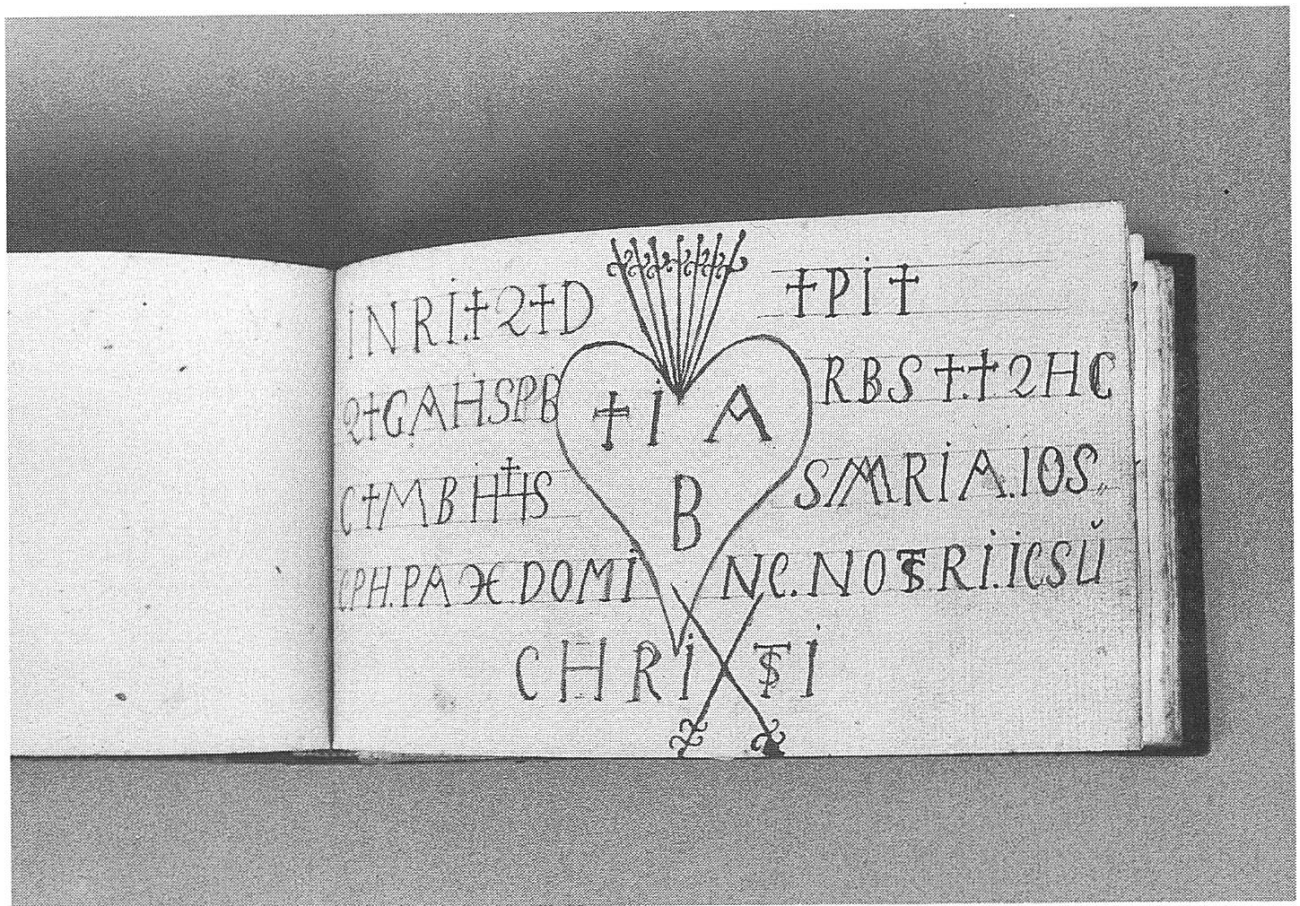 İNRİ.†2†D †Pİ†
2†GAHSPB †İ A RBS†.†2HC
C†MBH‡HS B SMRİA.IOS
CPH.PAX DOMİ NC.NOSTRİ.İCSŬ
CHRİSTİ